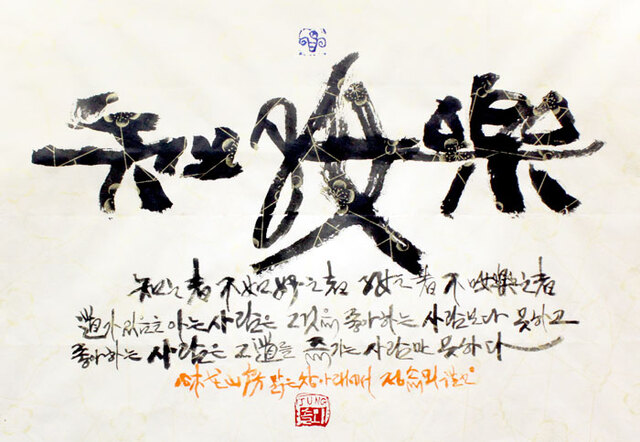 知好樂
知之者 不如好之者 好之者 不如樂之者
道가 있음을 아는 사람은 그것을 좋아하는 사람보다 못하고
좋아하는 사람은 그 道를 즐기는 사람만 못하다
山房 맑은 창 아래에서
JUNG